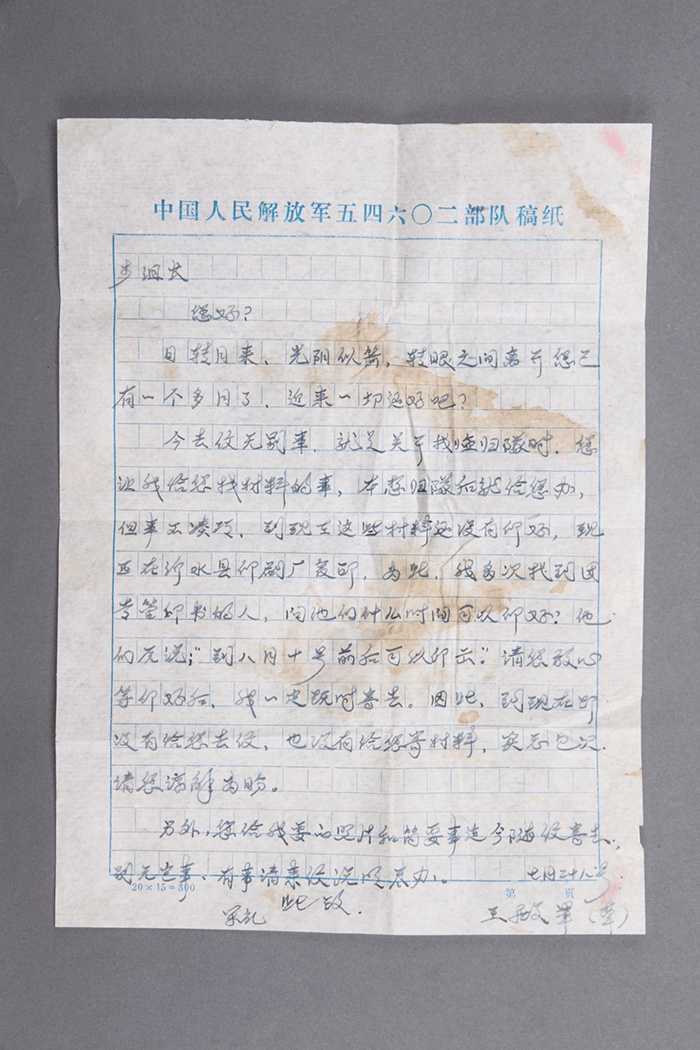 中国人民解放军五四六〇二部队稿纸
步组长
您好?
日转月来、光阴似箭,转眼之间离开您已
有一个多月了,近来一切还好吧?
今去信无别事,就是关于我归队时,您
让我给您找材料的事,本想归队后就给您办,
但事不凑巧,到现在这些材料还没有印好,现
正在沂水县印刷厂复印,为此,我多次找到团
专管印书的人,问他们什么时间可以印好?他
们只说;“到八月十号前后可以印出”请您放心
等印好后,我一定及时寄去。因此,到现在即
没有给您去信,也没有给您寄材料,实
请您谅解为盼。
另外,您给我要的照片和简要事迹今随信寄去,
别无它事、有事请来信说明照办。 七月二十八号
20×15=300 第 页
此致
军礼
王 (草)